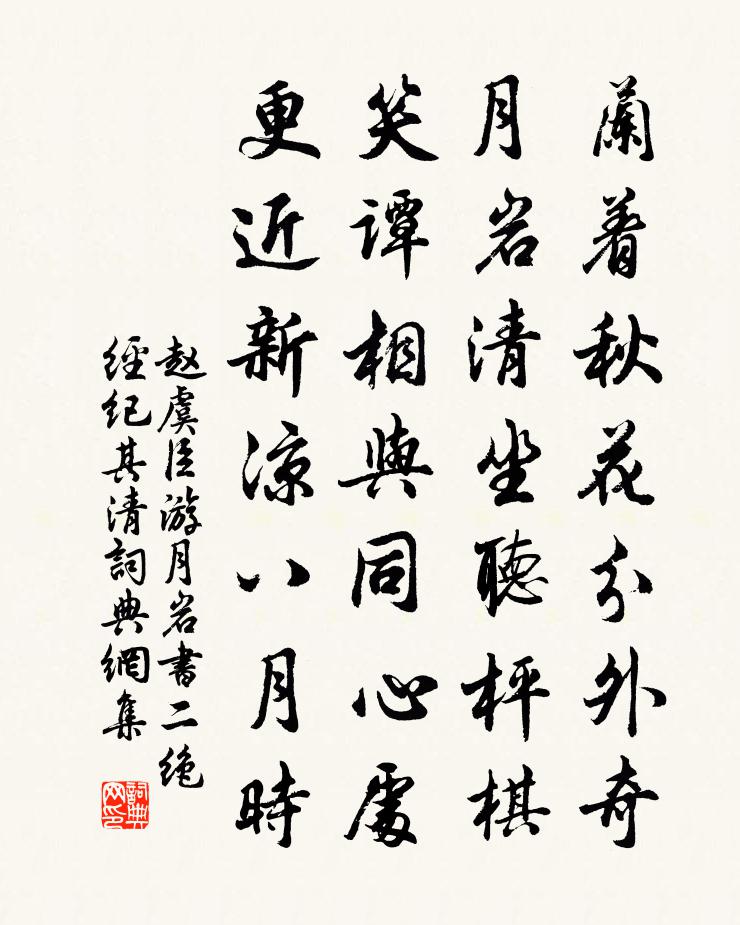 蘭着秋花分外奇
月岩清坐聽枰棋
笑譚相與同心處
更近新凉八月時
赵虞臣游月岩書二绝
經纪其清詞典網集
詞典网印